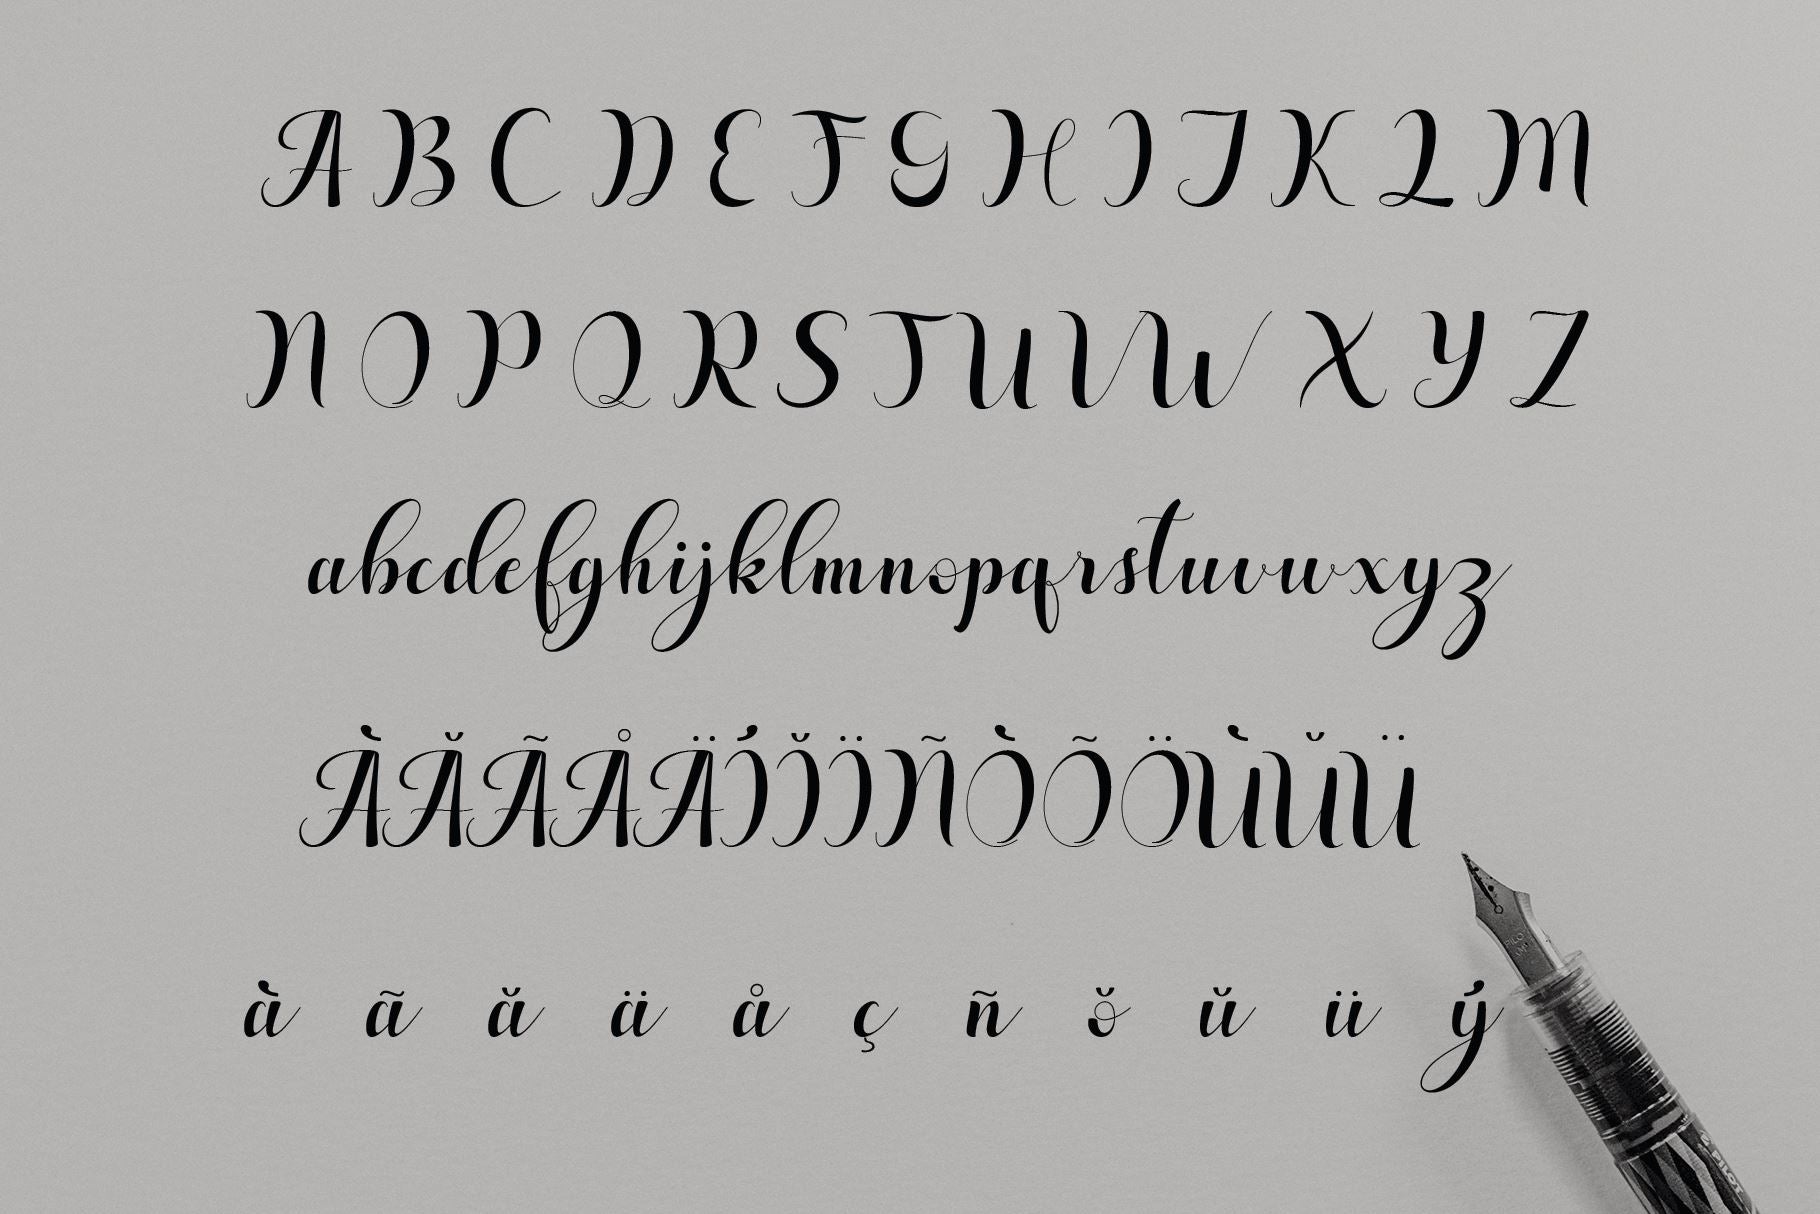 A B C D E F G H I J K L M
N O P Q R S T U V W X Y Z
abcdefghijklmnopqrstuvwxyz
ÀĂÃÅÄÍĬÏÑÒÕÖÙŬÜ
à ã ă ä å ç ñ ŏ ŭ ü ý
PILOT